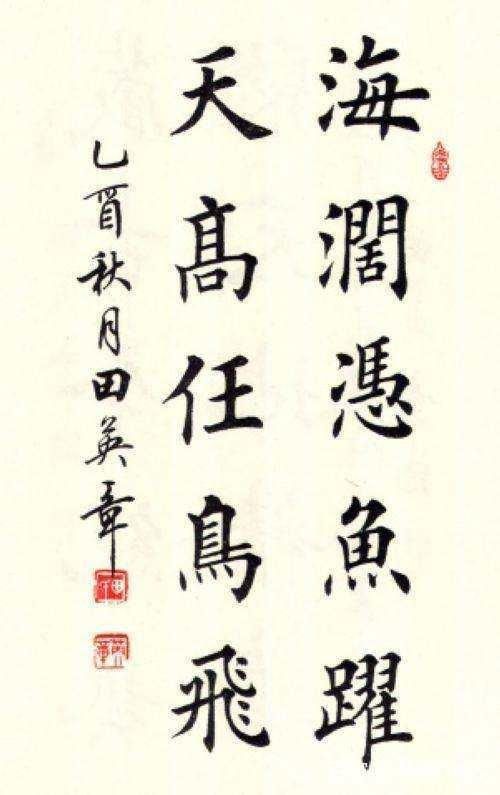 海濶憑魚躍
天高任鳥飛
乙酉秋月田英章